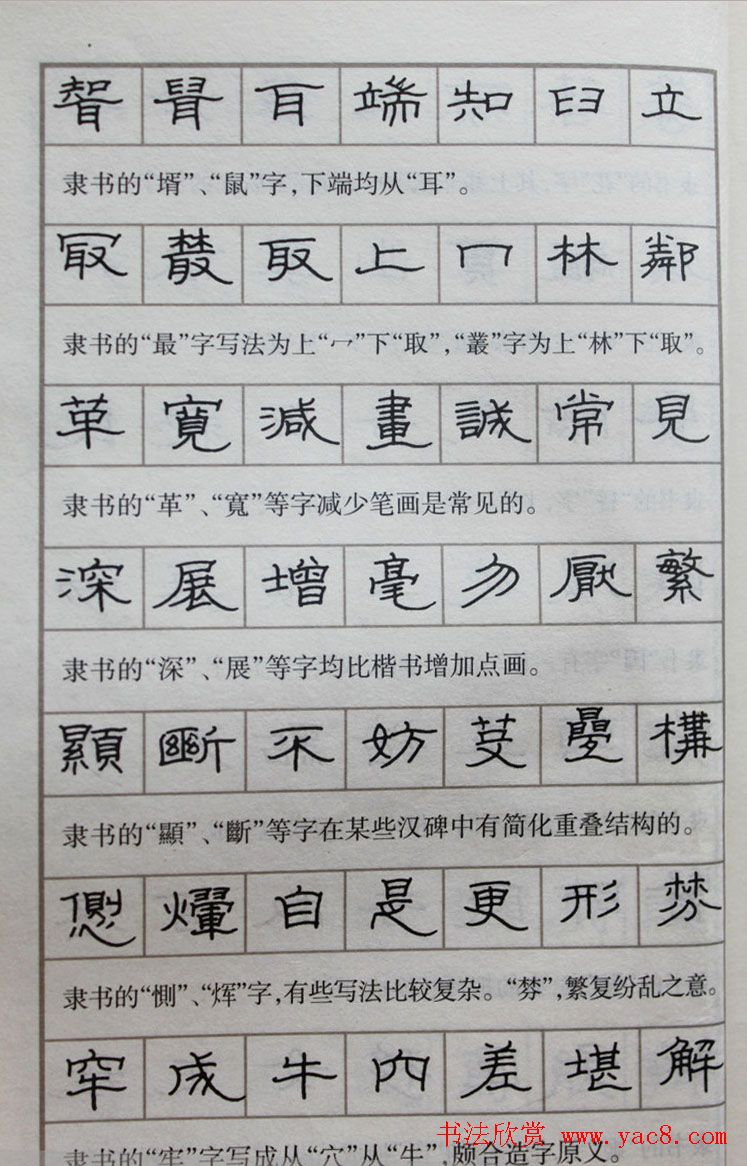 聟 耳 端 知 臼 立
隶书的“壻”、“鼠”字，下端均从“耳”。
冣 取 上 冖 林 鄰
隶书的“最”字写法为上“冖”下“取”，“叢”字为上“林”下“取”。
革 寛 減 畫 誠 常 見
隶书的“革”、“寬”等字减少笔画是常见的。
深 展 增 毫 勿 厭 繁
隶书的“深”、“展”等字均比楷书增加点画。
顯 斷 不 妨 芟 疊 構
隶书的“顯”、“斷”等字在某些汉碑中有简化重叠结构的。
自 是 更 形 棼
隶书的“惻”、“煇”字，有些写法比较复杂。“棼”，繁复纷乱之意。
牢 成 牛 內 差 堪 解
隶书的“牢”字写成从“穴”从“牛”，颇合造字原义。
书法欣赏 www.yac8.com